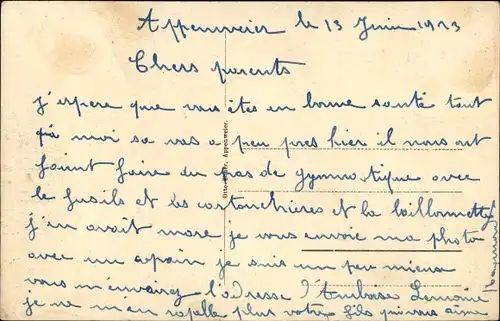 Appenweier le 13 Juin 1923
Chers parents
j'espere que vous êtes en bonne santé tant
qu'a moi sa vas a peu pres hier il nous ont
faint faire du pas de gymnatique avec
le fusils et les cartouchières et la baillonnette
j'en avait mare je vous envoie ma photo
avec un copain je suis un peu mieux
vous m'enverez l'adresse d'Amboise Lemoine
je ne m'en rapelle plus votre fils qui vous aime
Appenweier.